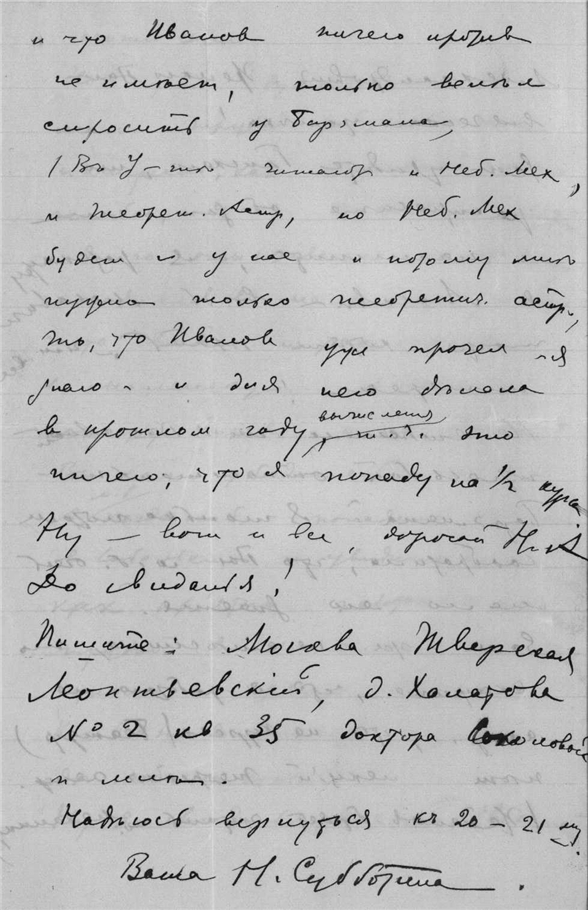 и что Иванов ничего против
не имѣет, только велѣл
спросить у
/ В У-тѣ читают и Неб. Мех,
и теорет. Астр, но Неб. Мех
будет и у нас и потому мнѣ
нужна только теоретич. астр.,
то, что Иванов уже прочел - я
знаю - и для него дѣлала
в прошлом году вычисления, т.ч. это
ничего, что я попаду на 1/2 курса.
Ну — вот и все, дорогой Н.А
До свиданья!
Пишите: Москва Тверская
Леонтьевскій, д. Халатова
№ 2 кв 35 доктора Соколовой
и мнѣ.
Надѣюсь вернуться къ 20 - 21 му.
Ваша Н. Субботина.